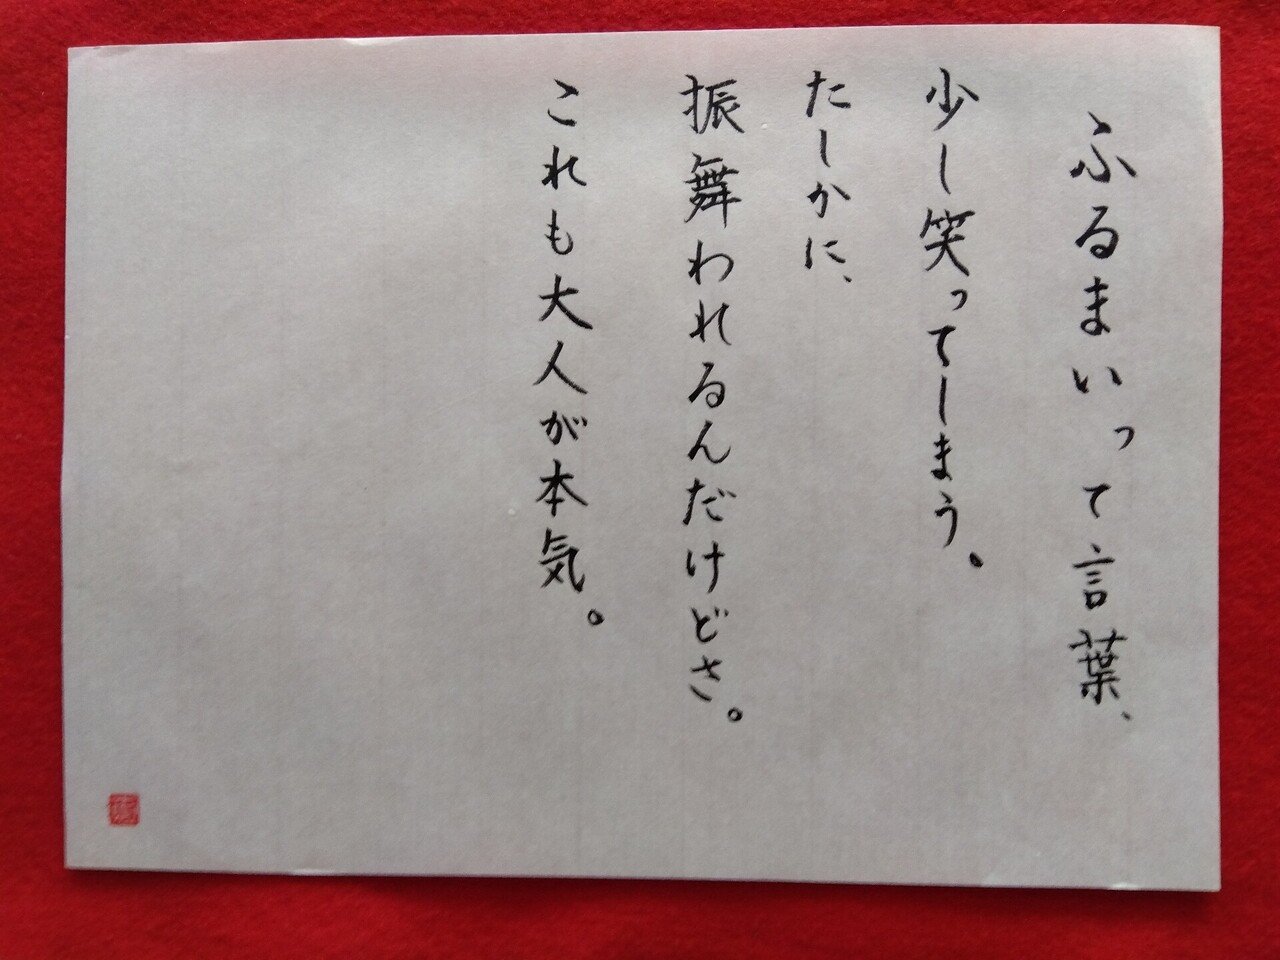 ふるまいって言葉、
少し笑ってしまう。
たしかに、
振舞われるんだけどさ。
これも大人が本気。